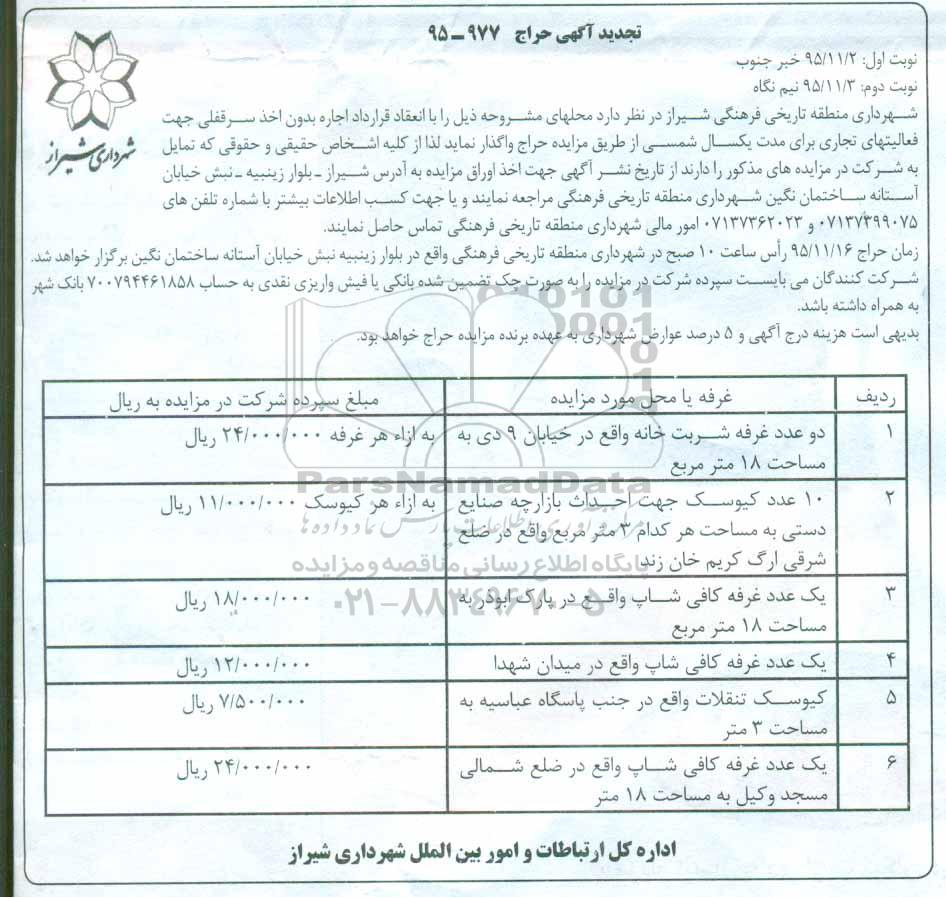 تجدید آگهی حراج ۹۷۷ـ۹۵
نوبت اول: ۹۵/۱۱/۲ خبر جنوب
نوبت دوم: ۹۵/۱۱/۳ نیم نگاه
شهرداری شیراز
شهرداری منطقه تاریخی فرهنگی شیراز در نظر دارد محلهای مشروحه ذیل را با انعقاد قرارداد اجاره بدون اخذ سرقفلی جهت
فعالیتهای تجاری برای مدت یکسال شمسی از طریق مزایده حراج واگذار نماید لذا از کلیه اشخاص حقیقی و حقوقی که تمایل
به شرکت در مزایده های مذکور را دارند از تاریخ نشر آگهی جهت اخذ اوراق مزایده به آدرس شیراز ـ بلوار زینبیه ـ نبش خیابان
آستانه ساختمان نگین شهرداری منطقه تاریخی فرهنگی مراجعه نمایند و یا جهت کسب اطلاعات بیشتر با شماره تلفن های
۰۷۱۳۷۳۹۹۰۷۵ و ۰۷۱۳۷۳۶۲۰۲۳ امور مالی شهرداری منطقه تاریخی فرهنگی تماس حاصل نمایند.
زمان حراج ۹۵/۱۱/۱۶ رأس ساعت ۱۰ صبح در شهرداری منطقه تاریخی فرهنگی واقع در بلوار زینبیه نبش خیابان آستانه ساختمان نگین برگزار خواهد شد.
شرکت کنندگان می بایست سپرده شرکت در مزایده را به صورت چک تضمین شده بانکی یا فیش واریزی نقدی به حساب ۷۰۰۷۹۴۴۶۱۸۵۸ بانک شهر
به همراه داشته باشد.
بدیهی است هزینه درج آگهی و ۵ درصد عوارض شهرداری به عهده برنده مزایده حراج خواهد بود.
ردیف غرفه یا محل مورد مزایده مبلغ سپرده شرکت در مزایده به ریال
۱ دو عدد غرفه شربت خانه واقع در خیابان ۹ دی به به ازاء هر غرفه ۲۴/۰۰۰/۰۰۰ ریال
مساحت ۱۸ متر مربع
ParsNamadData
۲ ۱۰ عدد کیوسک جهت احداث بازارچه صنایع به ازاء هر کیوسک ۱۱/۰۰۰/۰۰۰ ریال
دستی به مساحت هر کدام ۳ متر مربع واقع در ضلع
شرقی ارگ کریم خان زند
پایگاه اطلاع رسانی مناقصه و مزایده
۳ یک عدد غرفه کافی شاپ واقع در پارک ابوذر به ۱۸/۰۰۰/۰۰۰ ریال
مساحت ۱۸ متر مربع
۰۲۱-۸۸۳۴۹۶۷۰-۵
۴ یک عدد غرفه کافی شاپ واقع در میدان شهدا ۱۲/۰۰۰/۰۰۰ ریال
۵ کیوسک تنقلات واقع در جنب پاسگاه عباسیه به ۷/۵۰۰/۰۰۰ ریال
مساحت ۳ متر
۶ یک عدد غرفه کافی شاپ واقع در ضلع شمالی ۲۴/۰۰۰/۰۰۰ ریال
مسجد وکیل به مساحت ۱۸ متر
اداره کل ارتباطات و امور بین الملل شهرداری شیراز